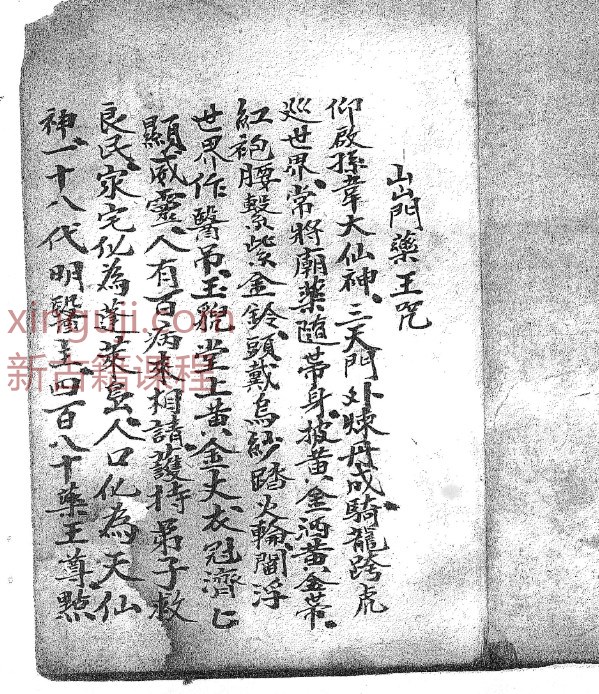 山門藥王咒
仰啟孫韋大仙神、三天門外煉丹成、騎龍跨虎
巡世界、常將廟藥隨帶身、披黃金洒黃金帶、
紅袍腰繫紫金鈴、頭戴烏紗踏火輪、閻浮
世界作醫帝、玉貌堂上黃金丈、衣冠濟匕
顯威靈、人有百病來相請、護持弟子救
良民、家宅化為蓬萊島、人口化為天仙
神、一十八代明醫主、四百八十藥王尊、點
xinguji.com
新古籍课程